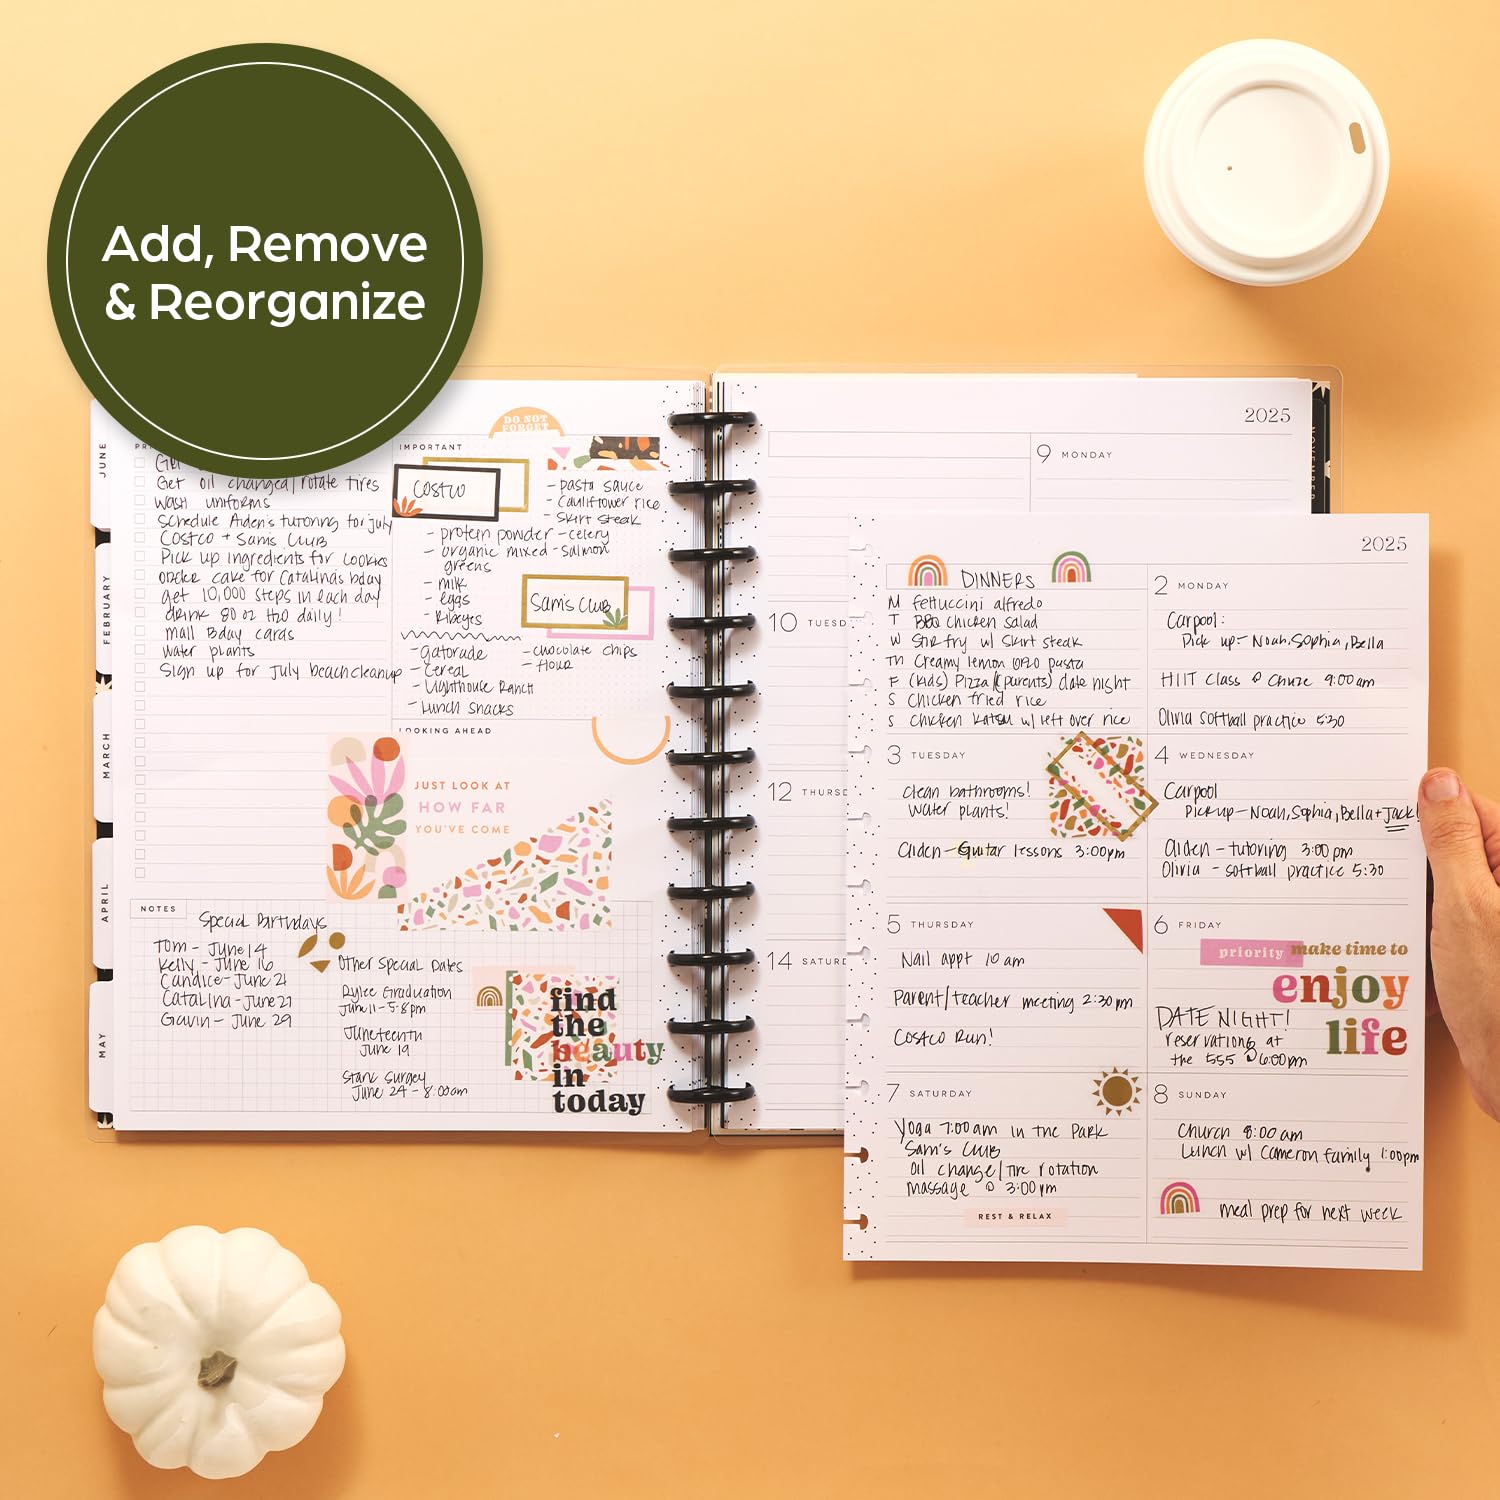 Add, Remove
& Reorganize
DO NOT
FORGET
JUNE
FEBRUARY
MARCH
APRIL
MAY
Get oil changed/rotate tires
Wash uniforms
Schedule Aiden's tutoring for july
Costco + Sam's Club
Pick up ingredients for cookies
order cake for Catalina's bday
get 10,000 steps in each day
drink 80 oz H2O daily!
mail Bday cards
water plants
Sign up for July beach cleanup
IMPORTANT
COSTCO
- pasta sauce
- Cauliflower rice
- Skirt steak
- protein powder
- celery
- organic mixed
greens
- salmon
- milk
- eggs
- Ribeyes
Sam's Club
- gatorade
- Cereal
- Lighthouse Ranch
- Lunch snacks
- chocolate chips
- flour
LOOKING AHEAD
JUST LOOK AT
HOW FAR
YOU'VE COME
NOTES
Special Birthdays
Tom - June 14
Kelly - June 16
Candice - June 21
Catalina - June 27
Gavin - June 29
Other Special Dates
Rylee Graduation
June 11 - 5-8pm
Juneteenth
June 19
June 24 - 8:00am
find
the
beauty
in
today
2025
9 MONDAY
10 TUESD
12 THURSD
14 SATURD
2025
DINNERS
M fettuccini alfredo
T BBQ chicken salad
W Stir fry w/ skirt steak
TH Creamy lemon orzo pasta
F (kids) Pizza (parents) date night
S Chicken fried rice
S Chicken Katsu w/ left over rice
2 MONDAY
Carpool:
Pick up - Noah, Sophia, Bella
HIIT class @ Chuze 9:00am
Olivia softball practice 5:30
3 TUESDAY
clean bathrooms!
water plants!
Aiden - Guitar lessons 3:00pm
4 WEDNESDAY
Carpool
Pickup - Noah, Sophia, Bella + Jack!
Aiden - tutoring 3:00pm
Olivia - softball practice 5:30
5 THURSDAY
Nail appt 10am
Parent/teacher meeting 2:30pm
Costco Run!
6 FRIDAY
priority
make time to
enjoy
life
DATE NIGHT!
reservations at
the 555 @ 6:00pm
7 SATURDAY
Yoga 7:00am in the Park
Sam's Club
Oil change/Tire rotation
Massage @ 3:00pm
REST & RELAX
8 SUNDAY
Church 8:00am
Lunch w/ Cameron family 1:00pm
meal prep for next week